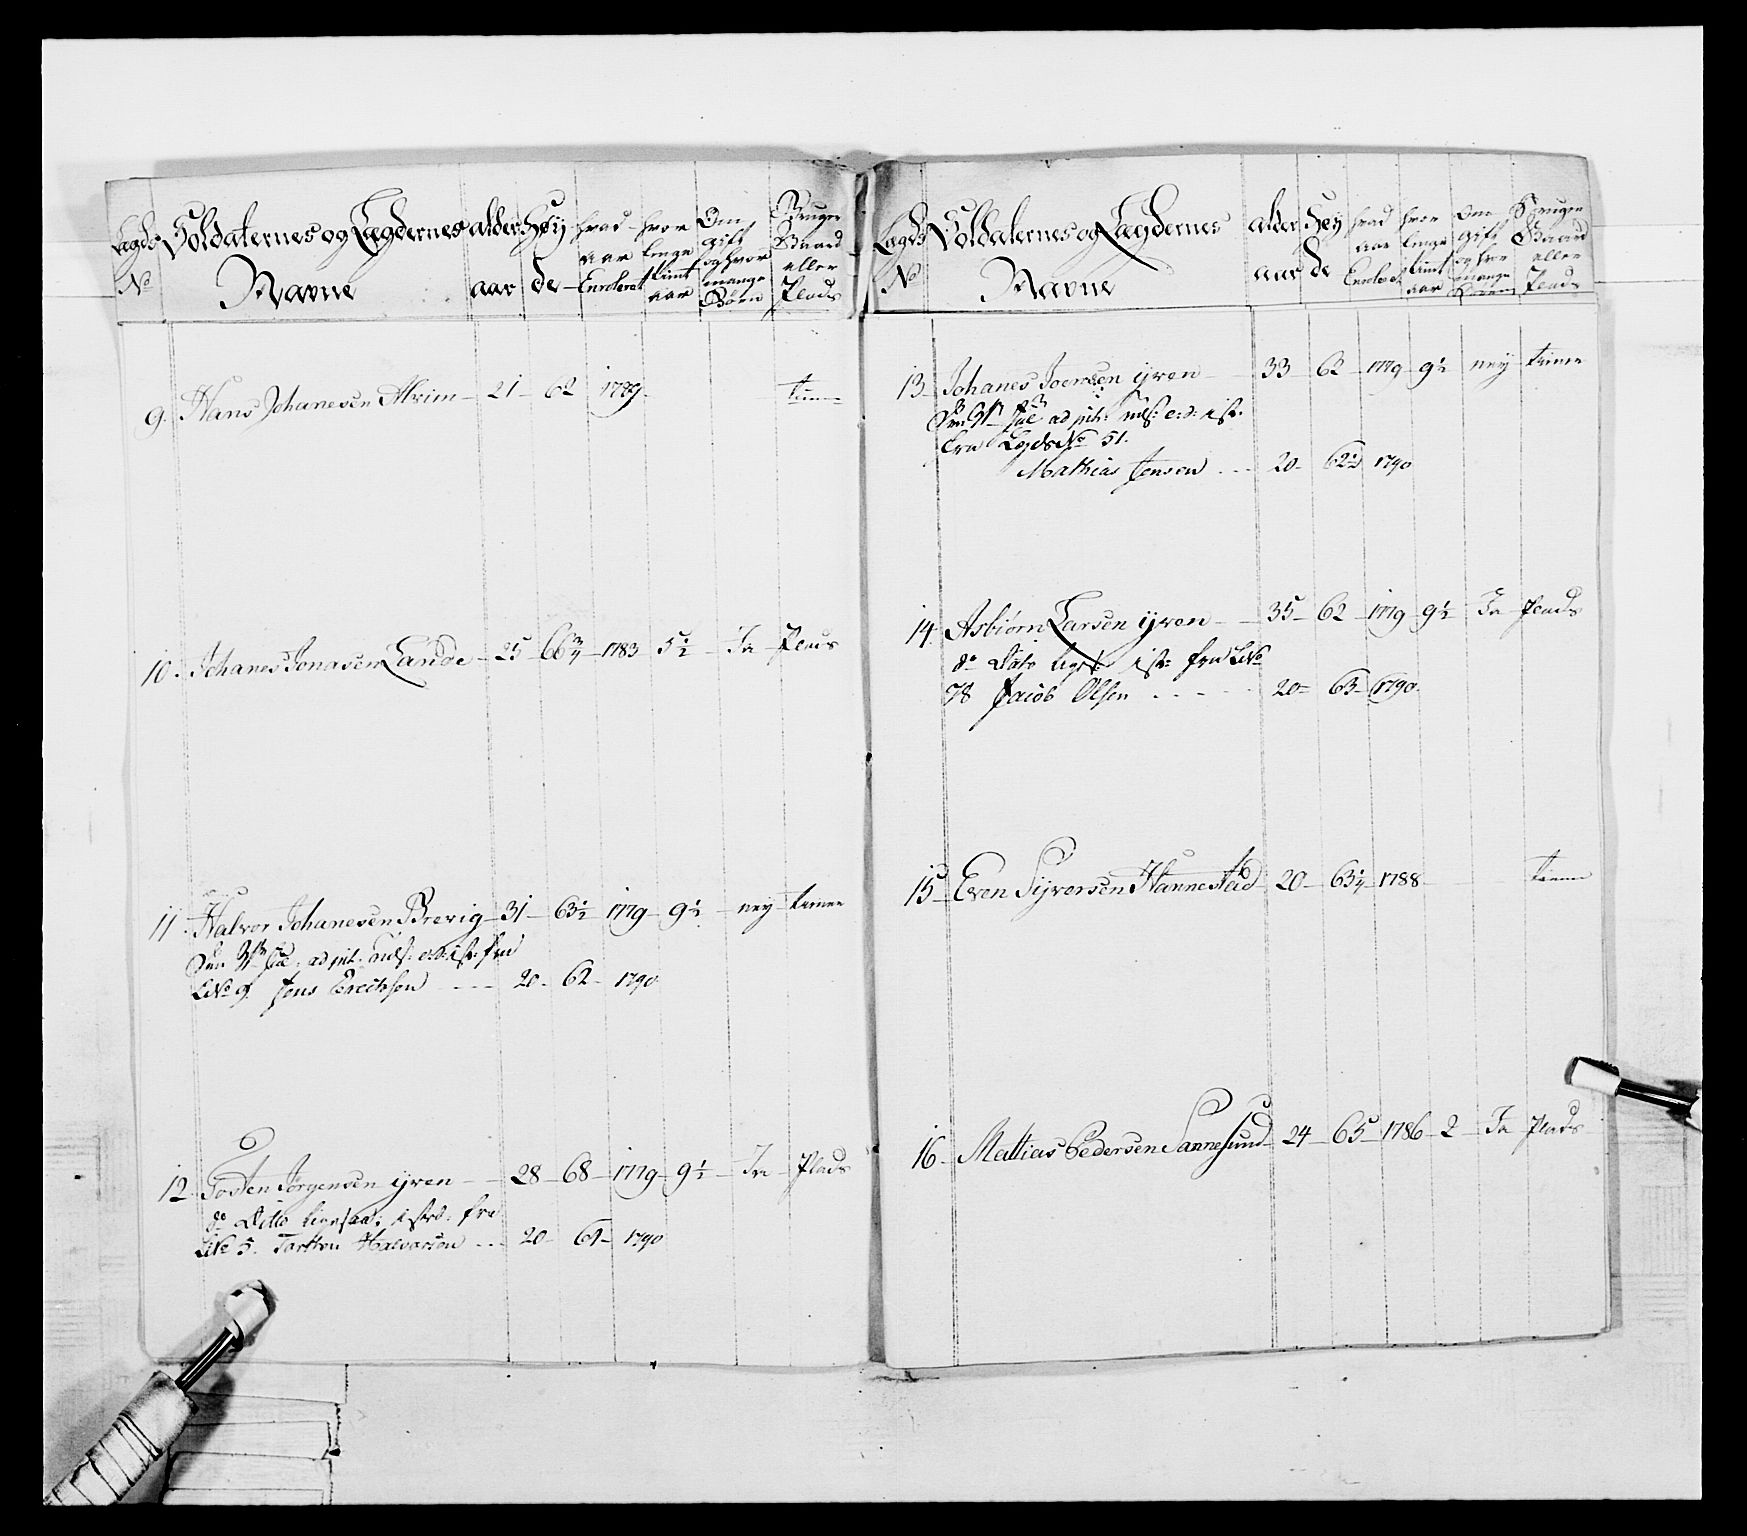 Lægds No
Soldaternes og Lægdernes Navne
alder aar
Høyde
hvad aar Enroleret
hvor lenge tient aar
Om Gift og hvor mange Børn
Bruger Gaard eller Plads
9. Hans Johanesen Alrim 21 62 1789 tiener
10. Johanes Jonasen Lande 25 66 3/4 1783 5 1/2 Ja Plads
11 Halvor Johanesen Brevig 31 63 1/2 1779 9 1/2 ney tiener
ist: fra
LNo 9. Jens Erichsen 20 62 1790
12 Tosten Jørgensen ijven 28 68 1779 9 1/2 Ja Plads
do Ditto fra
LNo 5. Halvorsen 20 61 1790
Lægds No
Soldaternes og Lægdernes Navne
alder aar
Høyde
hvad aar Enroleret
hvor lenge tient aar
Om Gift og hvor mange Børn
Bruger Gaard eller Plads
13 Johanes Joensen ijven 33 62 1779 9 1/2 ney tiener
ist:
fra Lægds No 51.
Mathias Jensen 20 62 1/2 1790
14 Asbiørn Larsen ijven 35 62 1779 9 1/2 Ja Plads
do Dito ist: fra LNo
78 Jacob Olsen 20 63 1790
15 Even Sijversen Hannestad 20 63 1/4 1788 tiener
16 Mattias Pedersen Sannesund 24 65 1786 2 Ja Plads